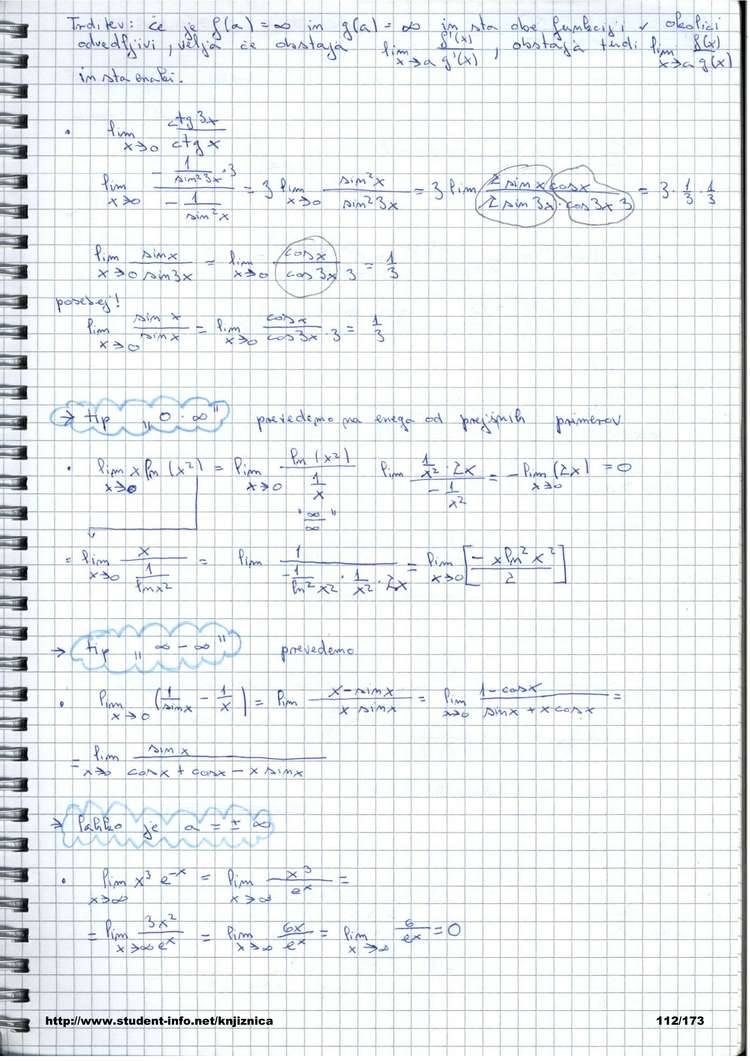 Trditev: če je f(a) = ∞ in g(a) = ∞ in sta obe funkciji v okolici
odvedljivi, velja če obstaja lim x→a f'(x)/g'(x), obstaja tudi lim x→a f(x)/g(x)
in sta enaki.
• lim x→0 ctg3x / ctgx
lim x→0 (-1/sin²3x · 3) / (-1/sin²x) = 3 lim x→0 sin²x / sin²3x = 3 lim (2 sinx cosx) / (2 sin3x · cos3x 3) = 3 · 1/3 · 1/3
lim x→0 sinx / sin3x = lim x→0 cosx / cos3x 3 = 1/3
posebej!
lim x→0 sin x / sinx = lim x→0 cosx / cos3x · 3 = 1/3
→ tip „ 0 · ∞ " prevedemo na enega od prejšnih primerov
• lim x→0 x ln(x²) = lim x→0 ln(x²) / (1/x) lim (1/x² · 2x) / (-1/x²) = - lim x→0 (2x) = 0
" ∞/∞ "
= lim x→0 x / (1/lnx²) = lim 1 / (-1/ln²x² · 1/x² · 2x) = lim x→0 [-x ln²x² / 2]
→ tip „ ∞ - ∞ " prevedemo
• lim x→0 (1/sinx - 1/x) = lim (x - sinx) / (x sinx) = lim x→0 (1 - cosx) / (sinx + x cosx) =
= lim x→0 sin x / (cosx + cosx - x sinx)
→ lahko je a = ± ∞
• lim x→∞ x³ e^-x = lim x→∞ x³ / eˣ =
= lim x→∞ 3x² / eˣ = lim x→∞ 6x / eˣ = lim x→∞ 6 / eˣ = 0
http://www.student-info.net/knjiznica 112/173